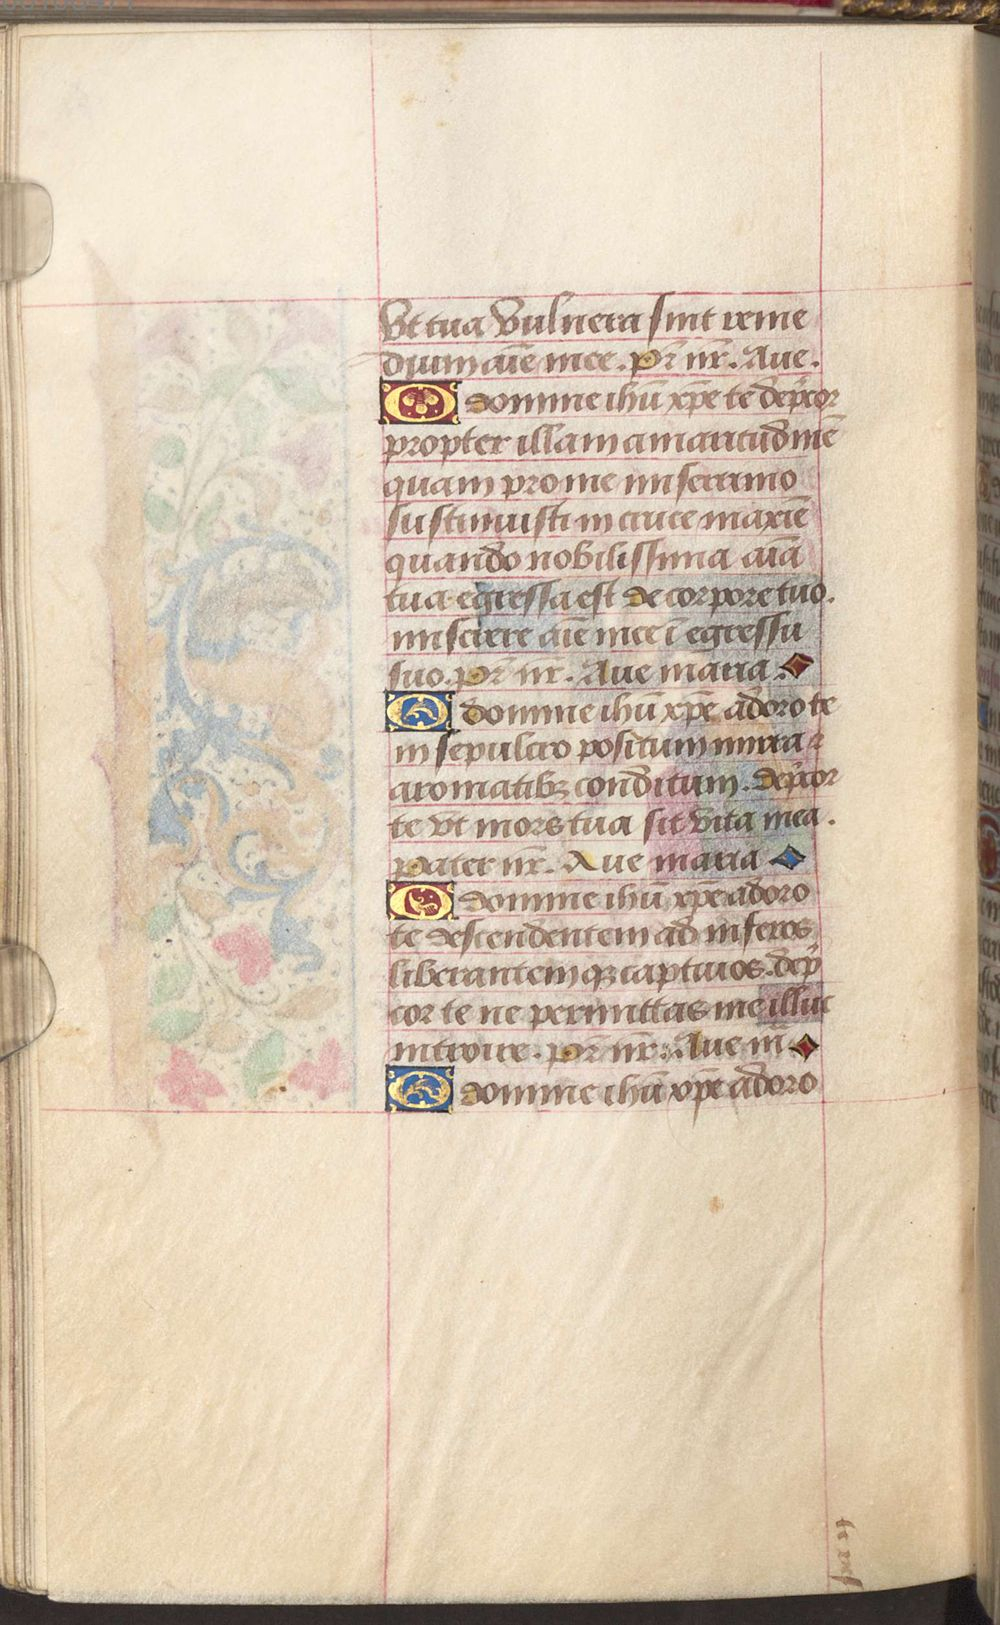 Vt tua Vulnera sint reme
dium aīe mee. Pr̄ nr̄. Aue.
O domine ihū xp̄e te dep̄cor
propter illam amaritudinē
quam pro me miserrimo
sustinuisti in cruce maxīe
quando nobilissima aīa
tua egressa est de corpore tuo.
miserere aīe mee ī egressu
suo. Pr̄ nr̄. Aue maria.
O domine ihū xp̄e adoro te
in sepulcro positum mirra ⁊
aromatibꝫ conditum. dep̄cor
te Vt mors tua sit Vita mea.
Pater nr̄. Aue maria
O domine ihū xp̄e adoro
te descendentem ad inferos
liberantemqꝫ captiuos. dep̄
cor te ne permittas me illuc
introire. pr̄ nr̄. Aue m̄
O domine ihū xp̄e adoro